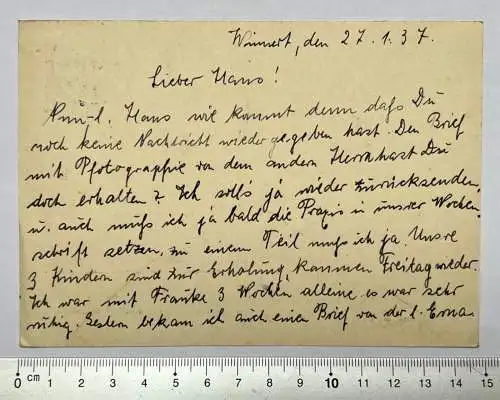 Winnert, den 27.1.37.
Lieber Hans!
Nun l. Hans wie kommt denn daſs Du
noch keine Nachricht wiedergegeben hast. Den Brief
mit Photographie von dem andern Herrn hast Du
doch erhalten? Ich solls ja wieder zurücksenden,
u. auch muſs ich ja bald die in unsrer Wochen-
schrift setzen, zu einem Teil muſs ich ja. Unsre
3 Kindern sind zur Erholung, kommen Freitag wieder.
Ich war mit Frauke 3 Wochen alleine es war sehr
ruhig. Gestern bekam ich auch einen Brief von der l. Erna
0 cm 1 2 3 4 5 6 7 8 9 10 11 12 13 14 15